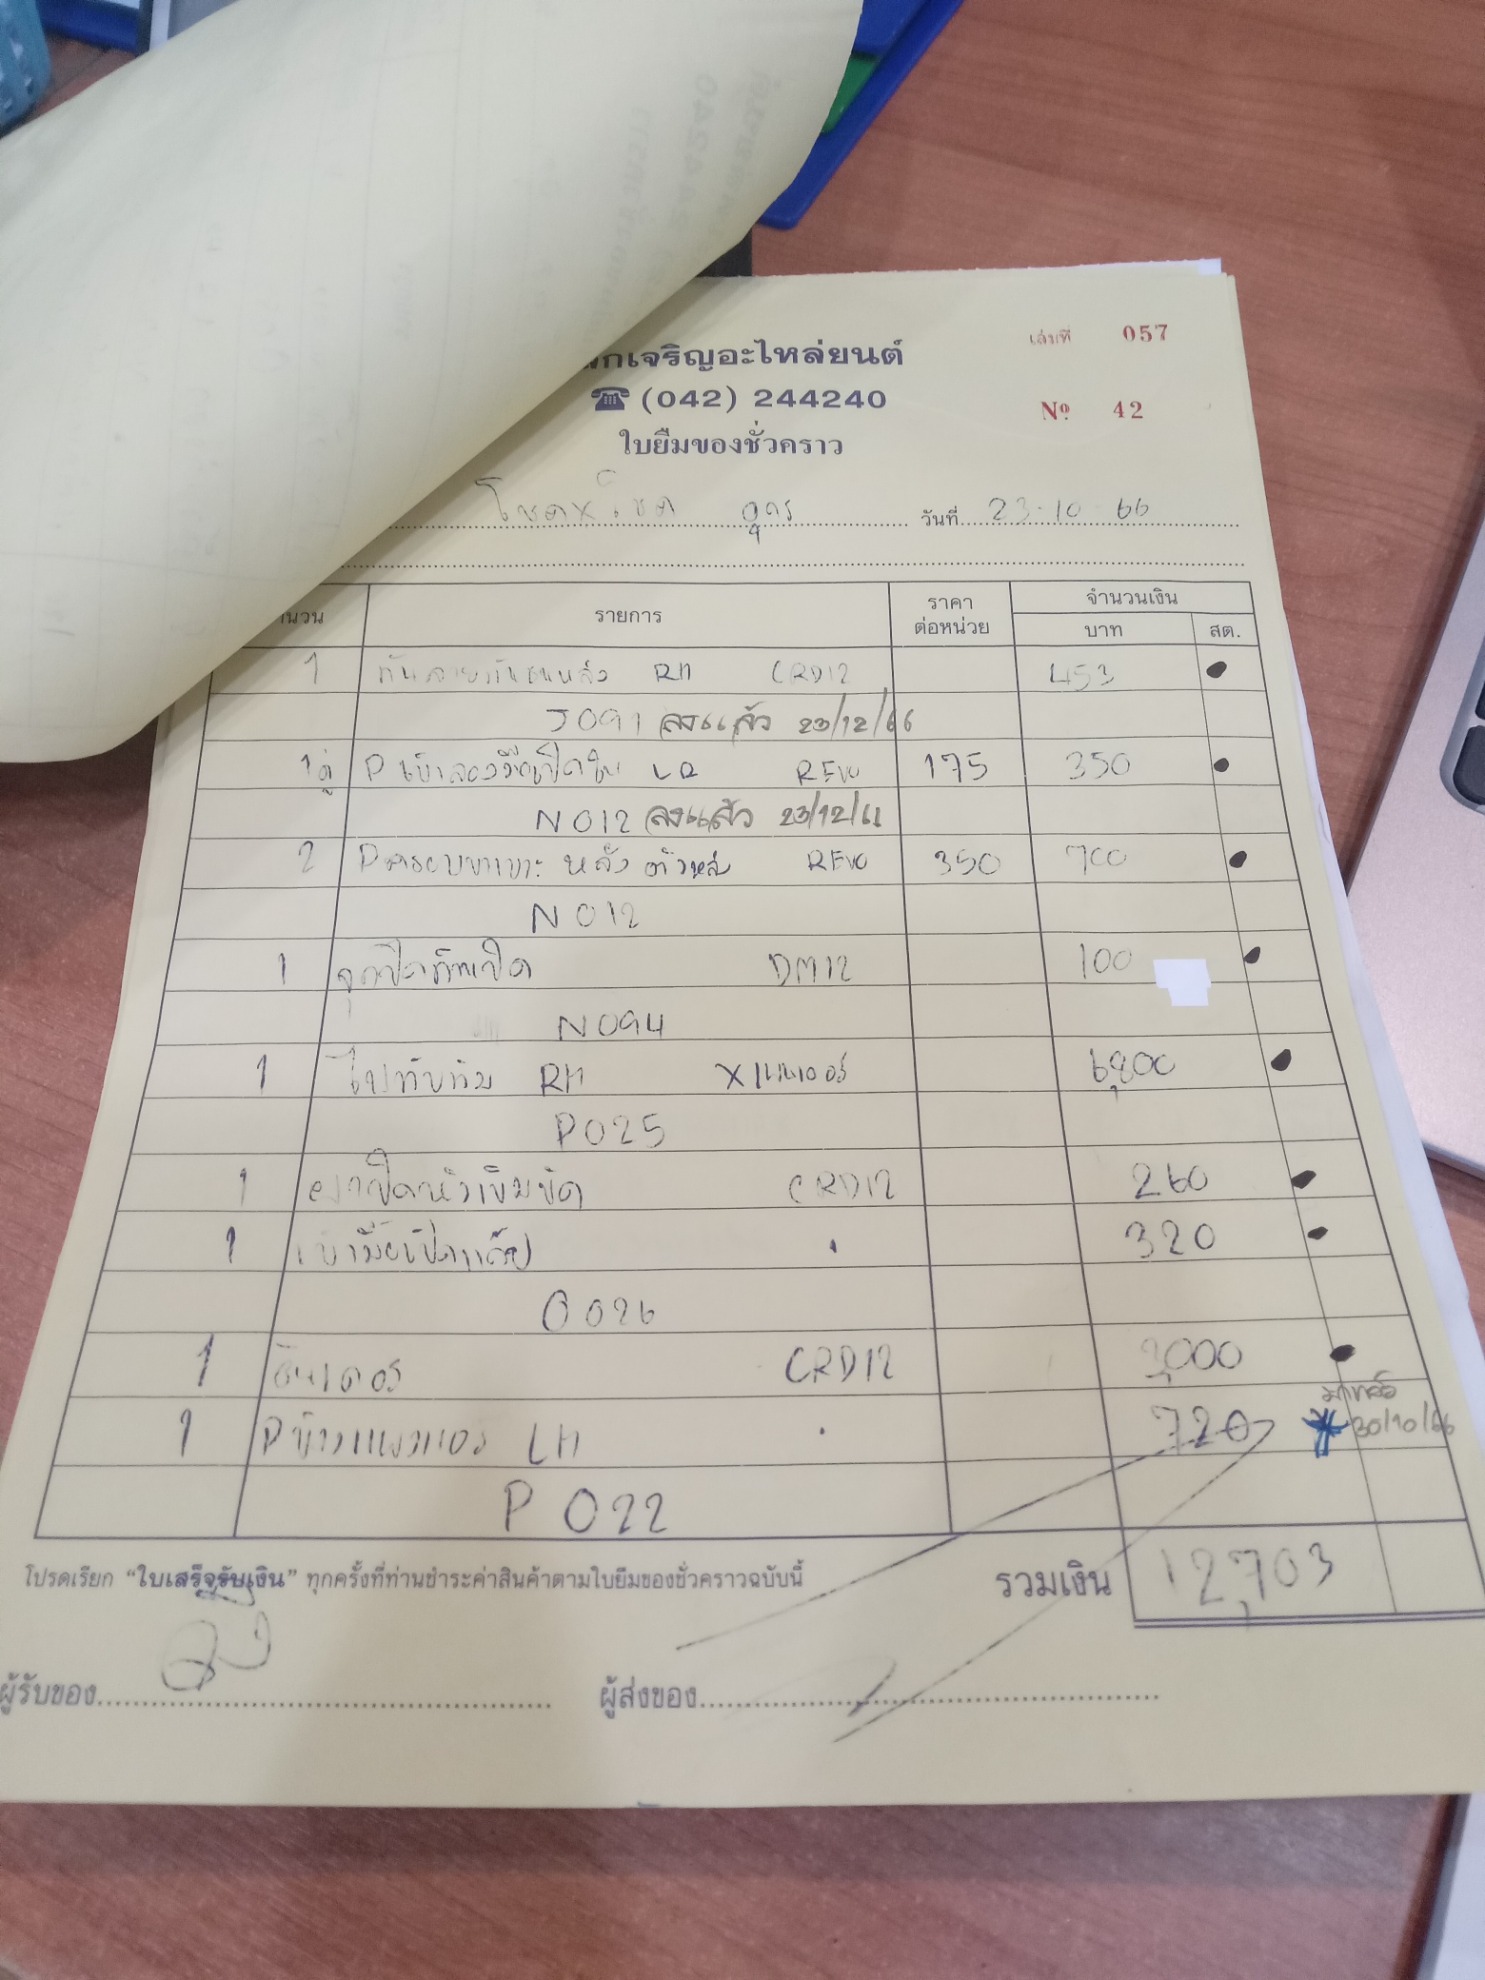 กเจริญอะไหล่ยนต์
☎ (042) 244240
ใบยืมของชั่วคราว
เล่มที่ 057
Nº 42
โชค X โชค อุดร วันที่ 23-10-66
นวน รายการ ราคา ต่อหน่วย จำนวนเงิน บาท สต.
1 กันลายกันชนหลัง RH CRD12 453
J091 ลงแล้ว 23/12/66
1คู่ P เบ้ารองมือเปิดใน LR REVO 175 350
N012 ลงแล้ว 23/12/66
2 P ครอบขาเบาะ หลัง ตัวหลัง REVO 350 700
N012
1 เปิด DM12 100
N094
1 ไฟทับทิม RH X 6,800
P025
1 ฝาปิดหัวเข็มขัด CRD12 260
1 เบ้ามือเปิดแค็ป . 320
O026
1 CRD12 3,000
1 P LH . 720 30/10/66
P022
โปรดเรียก “ใบเสร็จรับเงิน” ทุกครั้งที่ท่านชำระค่าสินค้าตามใบยืมของชั่วคราวฉบับนี้ รวมเงิน 12,703
ผู้รับของ ผู้ส่งของ